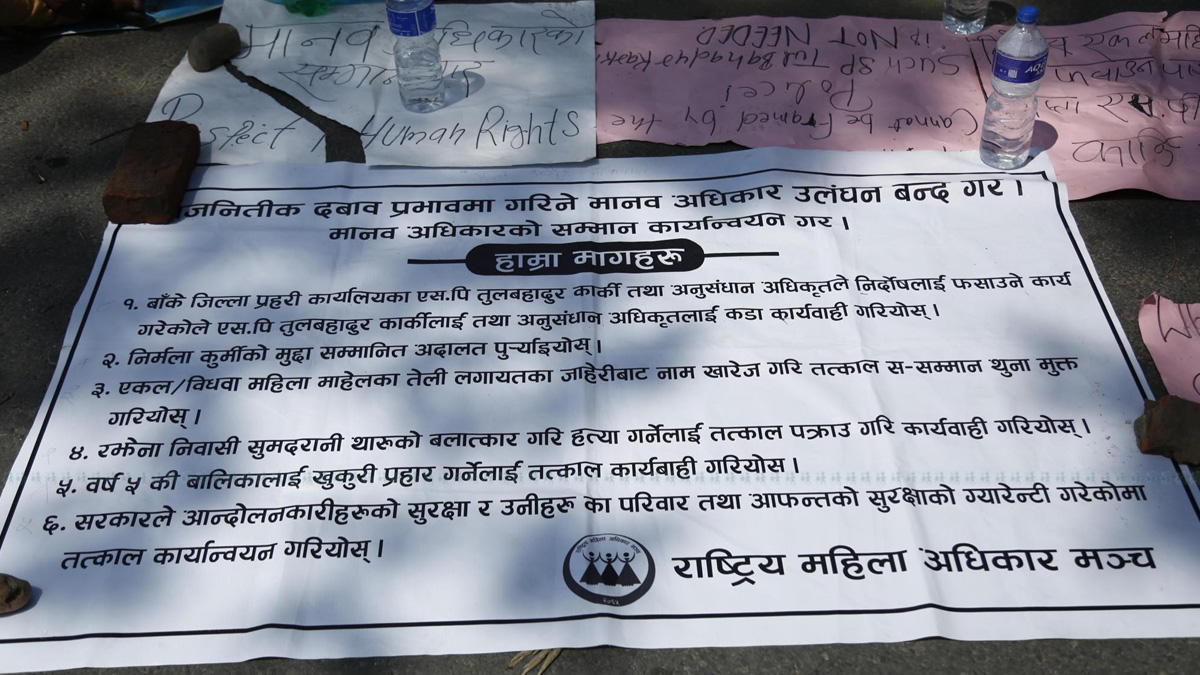 मानव अधिकारको
सम्मान गर
Respect Human Rights
Cannot be framed by the
Police!
Such SP Tul Bahadur Karki
is NOT NEEDED
जनितीक दबाव प्रभावमा गरिने मानव अधिकार उलंघन बन्द गर ।
मानव अधिकारको सम्मान कार्यान्वयन गर ।
हाम्रा मागहरू
१. बाँके जिल्ला प्रहरी कार्यालयका एस.पि तुलबहादुर कार्की तथा अनुसंधान अधिकृतले निर्दोषलाई फसाउने कार्य
गरेकोले एस.पि तुलबहादुर कार्कीलाई तथा अनुसंधान अधिकृतलाई कडा कार्यवाही गरियोस् ।
२. निर्मला कुर्मीको मुद्दा सम्मानित अदालत पुर्‍याइयोस् ।
३. एकल/विधवा महिला माहेलका तेली लगायतका जाहेरीबाट नाम खारेज गरि तत्काल स-सम्मान थुना मुक्त
गरियोस् ।
४. रझेना निवासी सुमदरानी थारूको बलात्कार गरि हत्या गर्नेलाई तत्काल पक्राउ गरि कार्यवाही गरियोस् ।
५. वर्ष ५ की बालिकालाई खुकुरी प्रहार गर्नेलाई तत्काल कार्यबाही गरियोस ।
६. सरकारले आन्दोलनकारीहरूको सुरक्षा र उनीहरू का परिवार तथा आफन्तको सुरक्षाको ग्यारेन्टी गरेकोमा
तत्काल कार्यान्वयन गरियोस् ।
राष्ट्रिय महिला अधिकार मञ्च